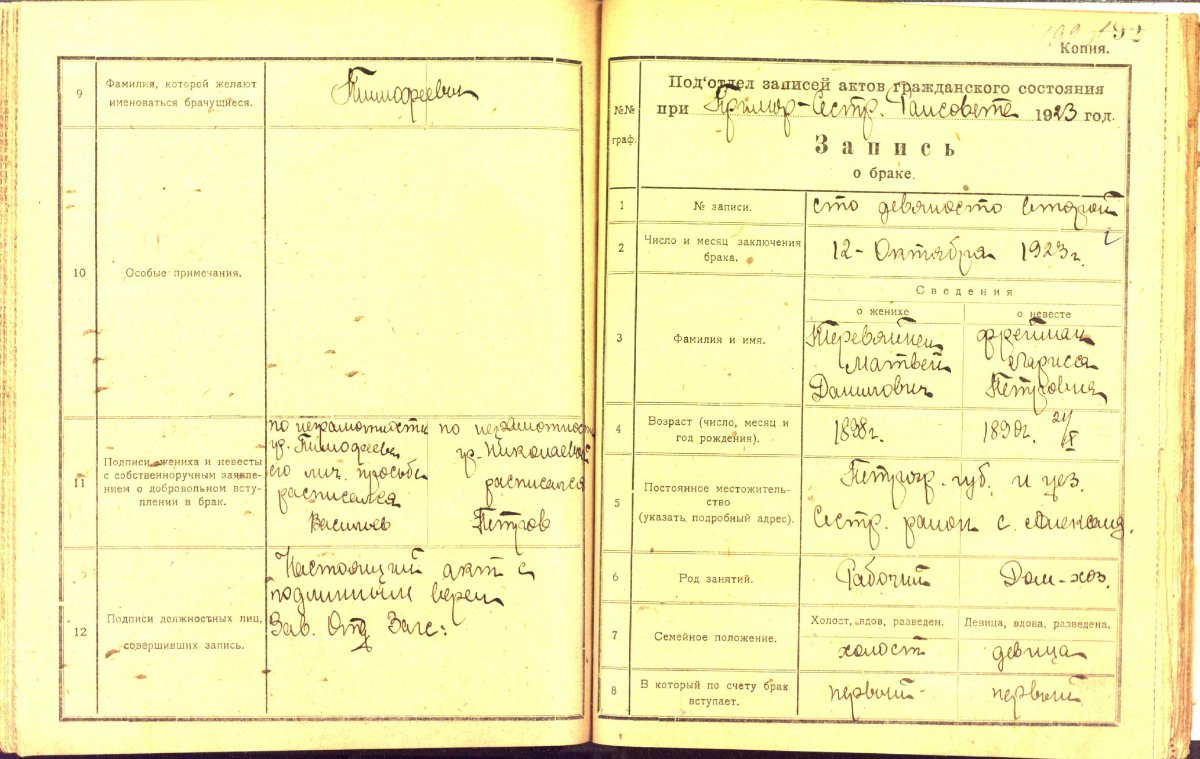 9
Фамилия, которой желают
именоваться брачущиеся.
Тимофеевы
10
Особые примечания.
11
Подписи жениха и невесты
с собственноручным заявле-
нием о добровольном всту-
плении в брак.
по неграмотности
гр. Тимофеев
его лич. просьбе
расписался
Васильев
по неграмотности
гр. Николаевой
расписался
Петров
12
Подписи должностных лиц,
совершивших запись.
Настоящий акт с
подлинным верен
Зав. Отд Загс:
Копия.
№№
граф.
Под'отдел записей актов гражданского состояния
при Сестр. 1923 год.
Запись
о браке.
1
№ записи.
сто девяносто второй
2
Число и месяц заключения
брака.
12 - Октября 1923 г.
3
Фамилия и имя.
Сведения
о женихе
о невесте
Матвей
Данилович
Фрейман
Ларисса
Петровна
4
Возраст (число, месяц и
год рождения).
1898 г.
5
Постоянное местожитель-
ство
(указать, подробный адрес).
Петрогр. губ. и уез.
Сестр. район с. Александ.
6
Род занятий.
Рабочий
Дом-хоз.
7
Семейное положение.
Холост, вдов, разведен.
Девица, вдова, разведена.
холост
девица
8
В который по счету брак
вступает.
первый
первый